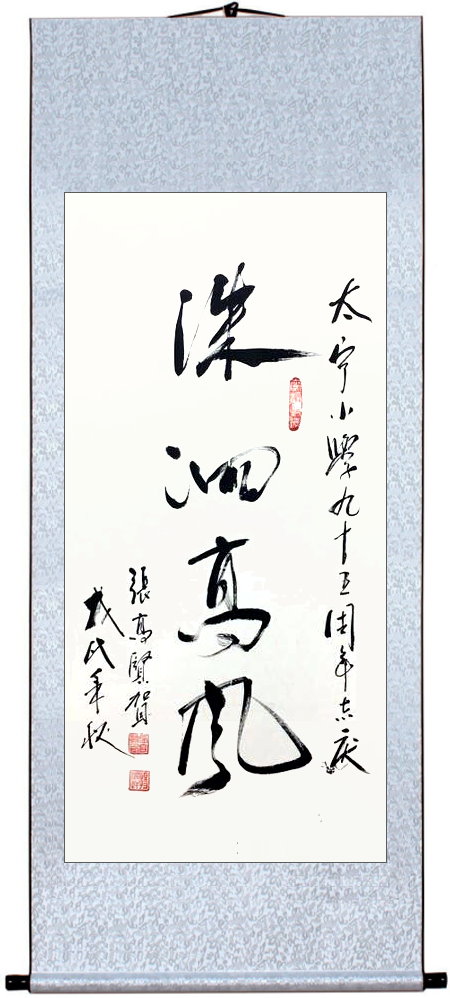 太宁小學九十五周年志庆
洙泗高风
張高賢賀
戊戌年秋